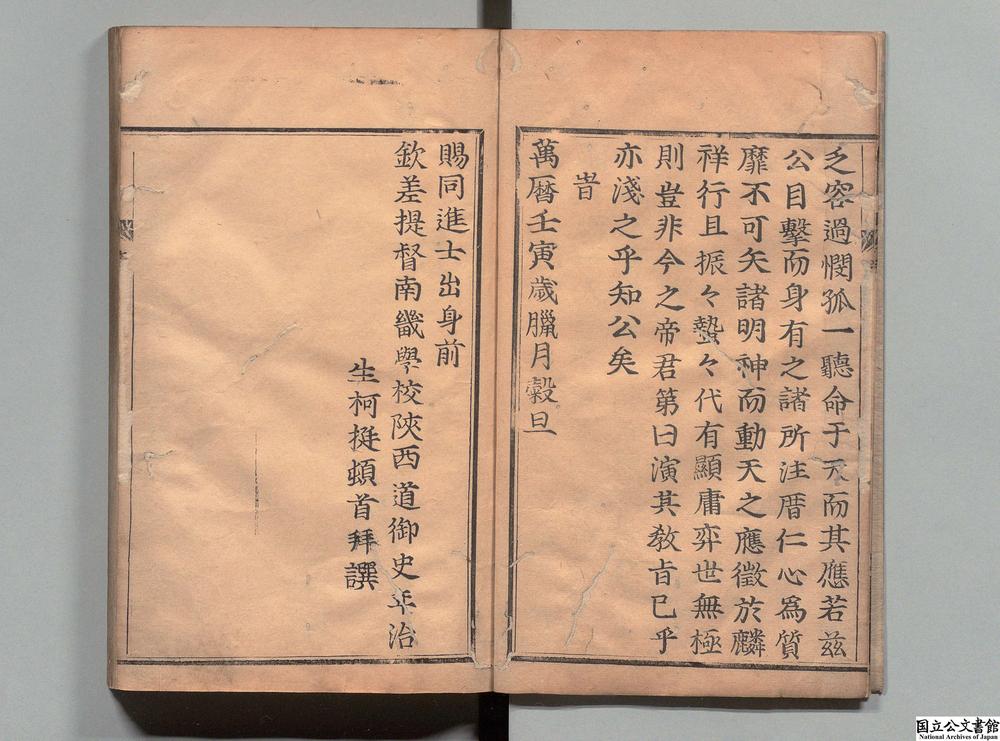 乏容過憫孤一聽命于天而其應若茲
公目擊而身有之諸所注厝仁心為質
靡不可矢諸明神而動天之應徵於麟
祥行且振々蟄々代有顯庸弈世無極
則豈非今之帝君第曰演其敎旨已乎
亦淺之乎知公矣
旹
萬曆壬寅歲臘月穀旦
賜同進士出身前
欽差提督南畿學校陝西道御史年治
生柯挺頓首拜譔
国立公文書館
National Archives of Japan